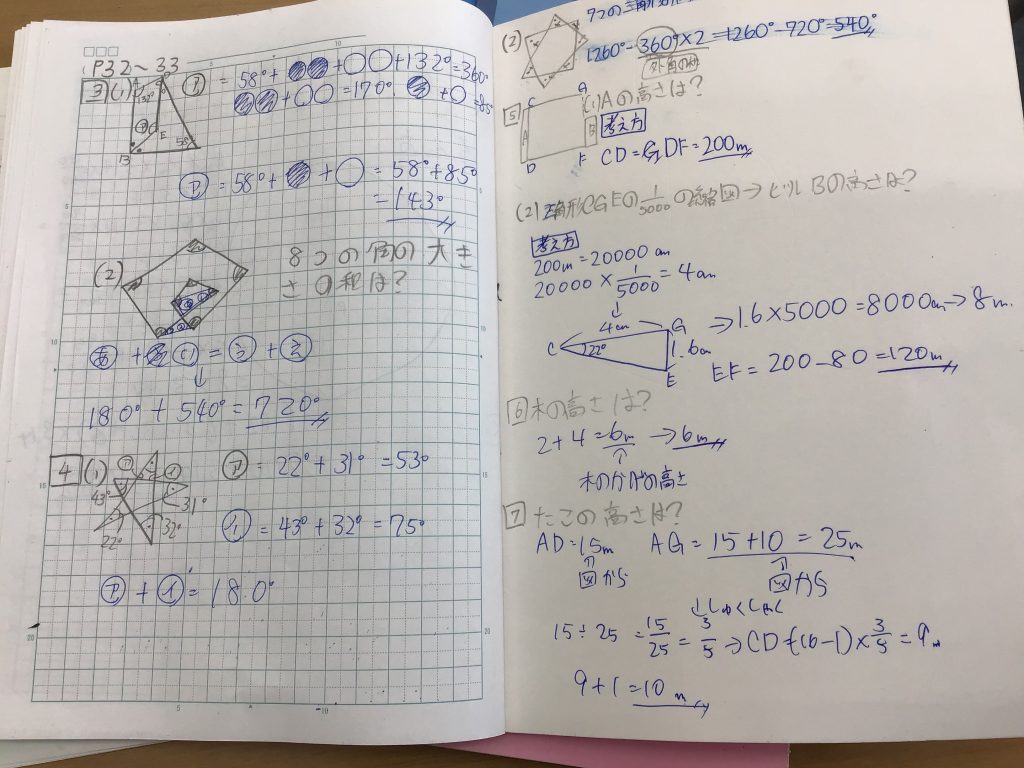 P32~33
3 (1) ㋐ = 58°+●●+○○+132°=360°
132°
㋐
E
B
58°
●●+○○=170° ●+○=85°
㋐=58°+●+○=58°+85°
=143°
(2)
8つの角の大き
さの和は?
180°+540°=720°
4 (1)
㋐=22°+31°=53°
43°
31°
32°
22°
㋑=43°+32°=75°
㋐+㋑=180°
(2)
1260°-360°×2=1260°-720°=540°
外角の和
5 (1)Aの高さは?
C G
A B
D F
考え方
CD=GF=200m
(2)三角形CGEの1/5000の縮図→ビルBの高さは?
考え方
200m=20000cm
20000×1/5000=4cm
↓
4cm
C
22°
G
1.6cm
E
⇒1.6×5000=8000cm→8m
EF=200-80=120m
6 木の高さは?
2+4=6m→6m
↑
木の分かれの高さ
7 たこの高さは?
AD=15m AG=15+10=25m
⇑ ⇑
図から 図から
↓しゅくしゃく
15÷25=15/25=3/5→CD=(16-1)×3/5=9m
9+1=10m